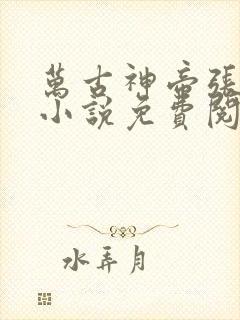 萬古神帝張
小說免費閱
水弄月